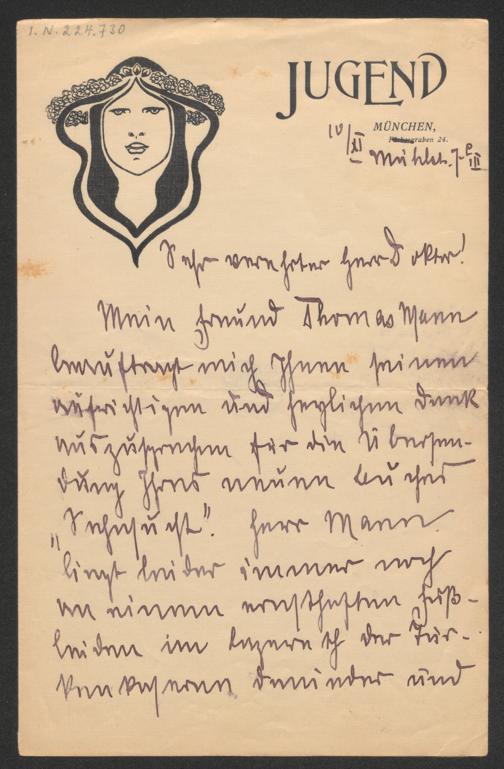 I. N. 224.730
JUGEND
MÜNCHEN,
Färbergraben 24.
10/XI
Mühlstr. 7
III
Sehr verehrter Herr Doktor!
Mein Freund Thomas Mann
beauftragt mich Ihnen seinen
aufrichtigen und herzlichen Dank
auszusprechen für die Übersen-
dung Ihres neuen Buches
„Sehnsucht“. Herr Mann
liegt leider immer noch
an einem ernsthaften Fuß-
leiden im Lazareth der Tür-
kenkaserne danieder und